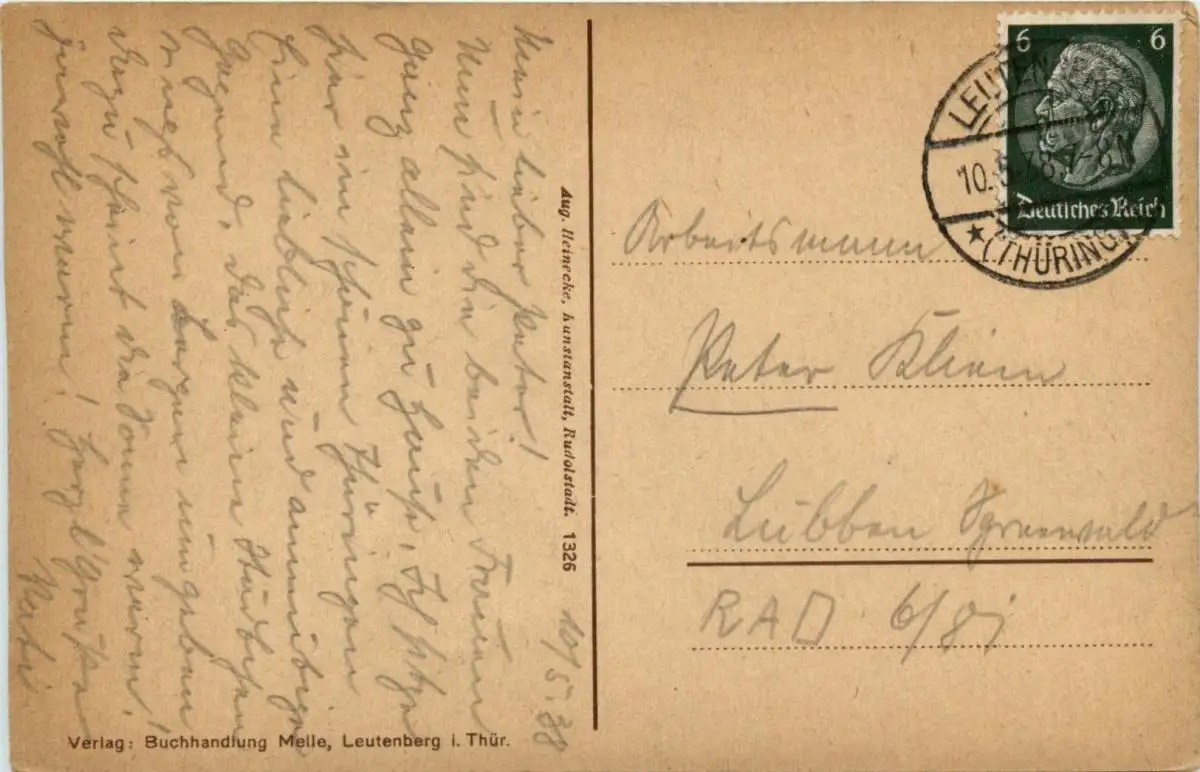 10/5.38
Mein lieber Peter!
Nun sind die beiden Frauen
ganz allein zu Hause. Ich sitze
hier im schönen Thüringen
Eine liebliche und anmutige
Gegend, das kleine Städtchen
rings von Bergen umgeben!
Dazu scheint die Sonne warm,
Herzl. Grüße
6 6
Deutsches Reich
LEUTENBERG
10.5.38.7-8
★(THÜRING)
Arbeitsmann
Peter Klein
Lübben Spreewald
RAD 6/81
Aug. Heinecke, Kunstanstalt, Rudolstadt. 1326
Verlag: Buchhandlung Melle, Leutenberg i. Thür.